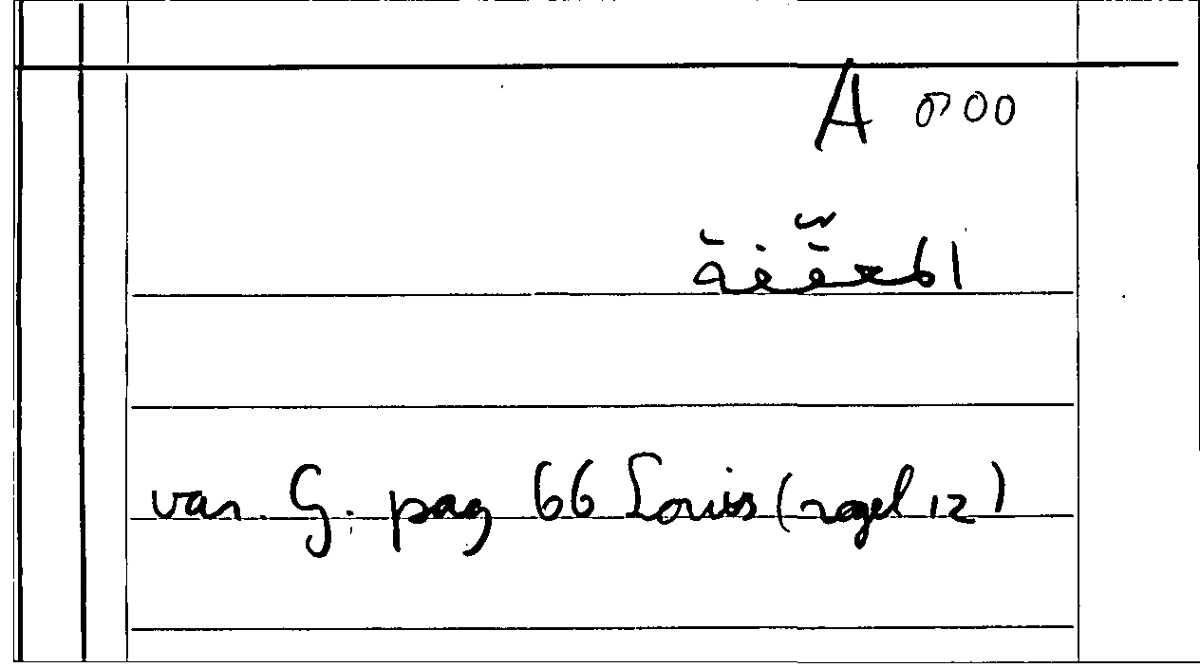 A
المعقّفة
var. G. pag 66 Louis (regel 12)